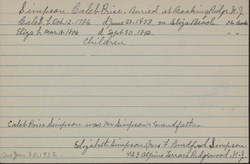 Simpson Caleb Brice. Buried at Basking Ridge N.J.
Caleb b Oct. 12. 1796 d June 23. 1873 m Eliza Beach
Eliza b Mar. 1806 d Sept 30. 1882
Children
Caleb Brice Simpson was Mr Simpson's grandfather
Elizabeth Simpson Mrs F. Bradford Simpson
423 Alpine Terrace Ridgewood N.J.